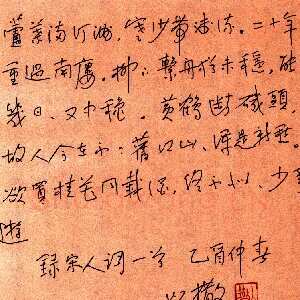 蘆葉滿汀洲，寒沙帶淺流。二十年
重過南樓。柳下繫舟猶未穩，能
幾日、又中秋。黄鶴斷磯頭，
故人今在不？舊江山、渾是新愁。
欲買桂花同載酒，終不似、少年
遊
錄宋人詞一首 乙酉仲春